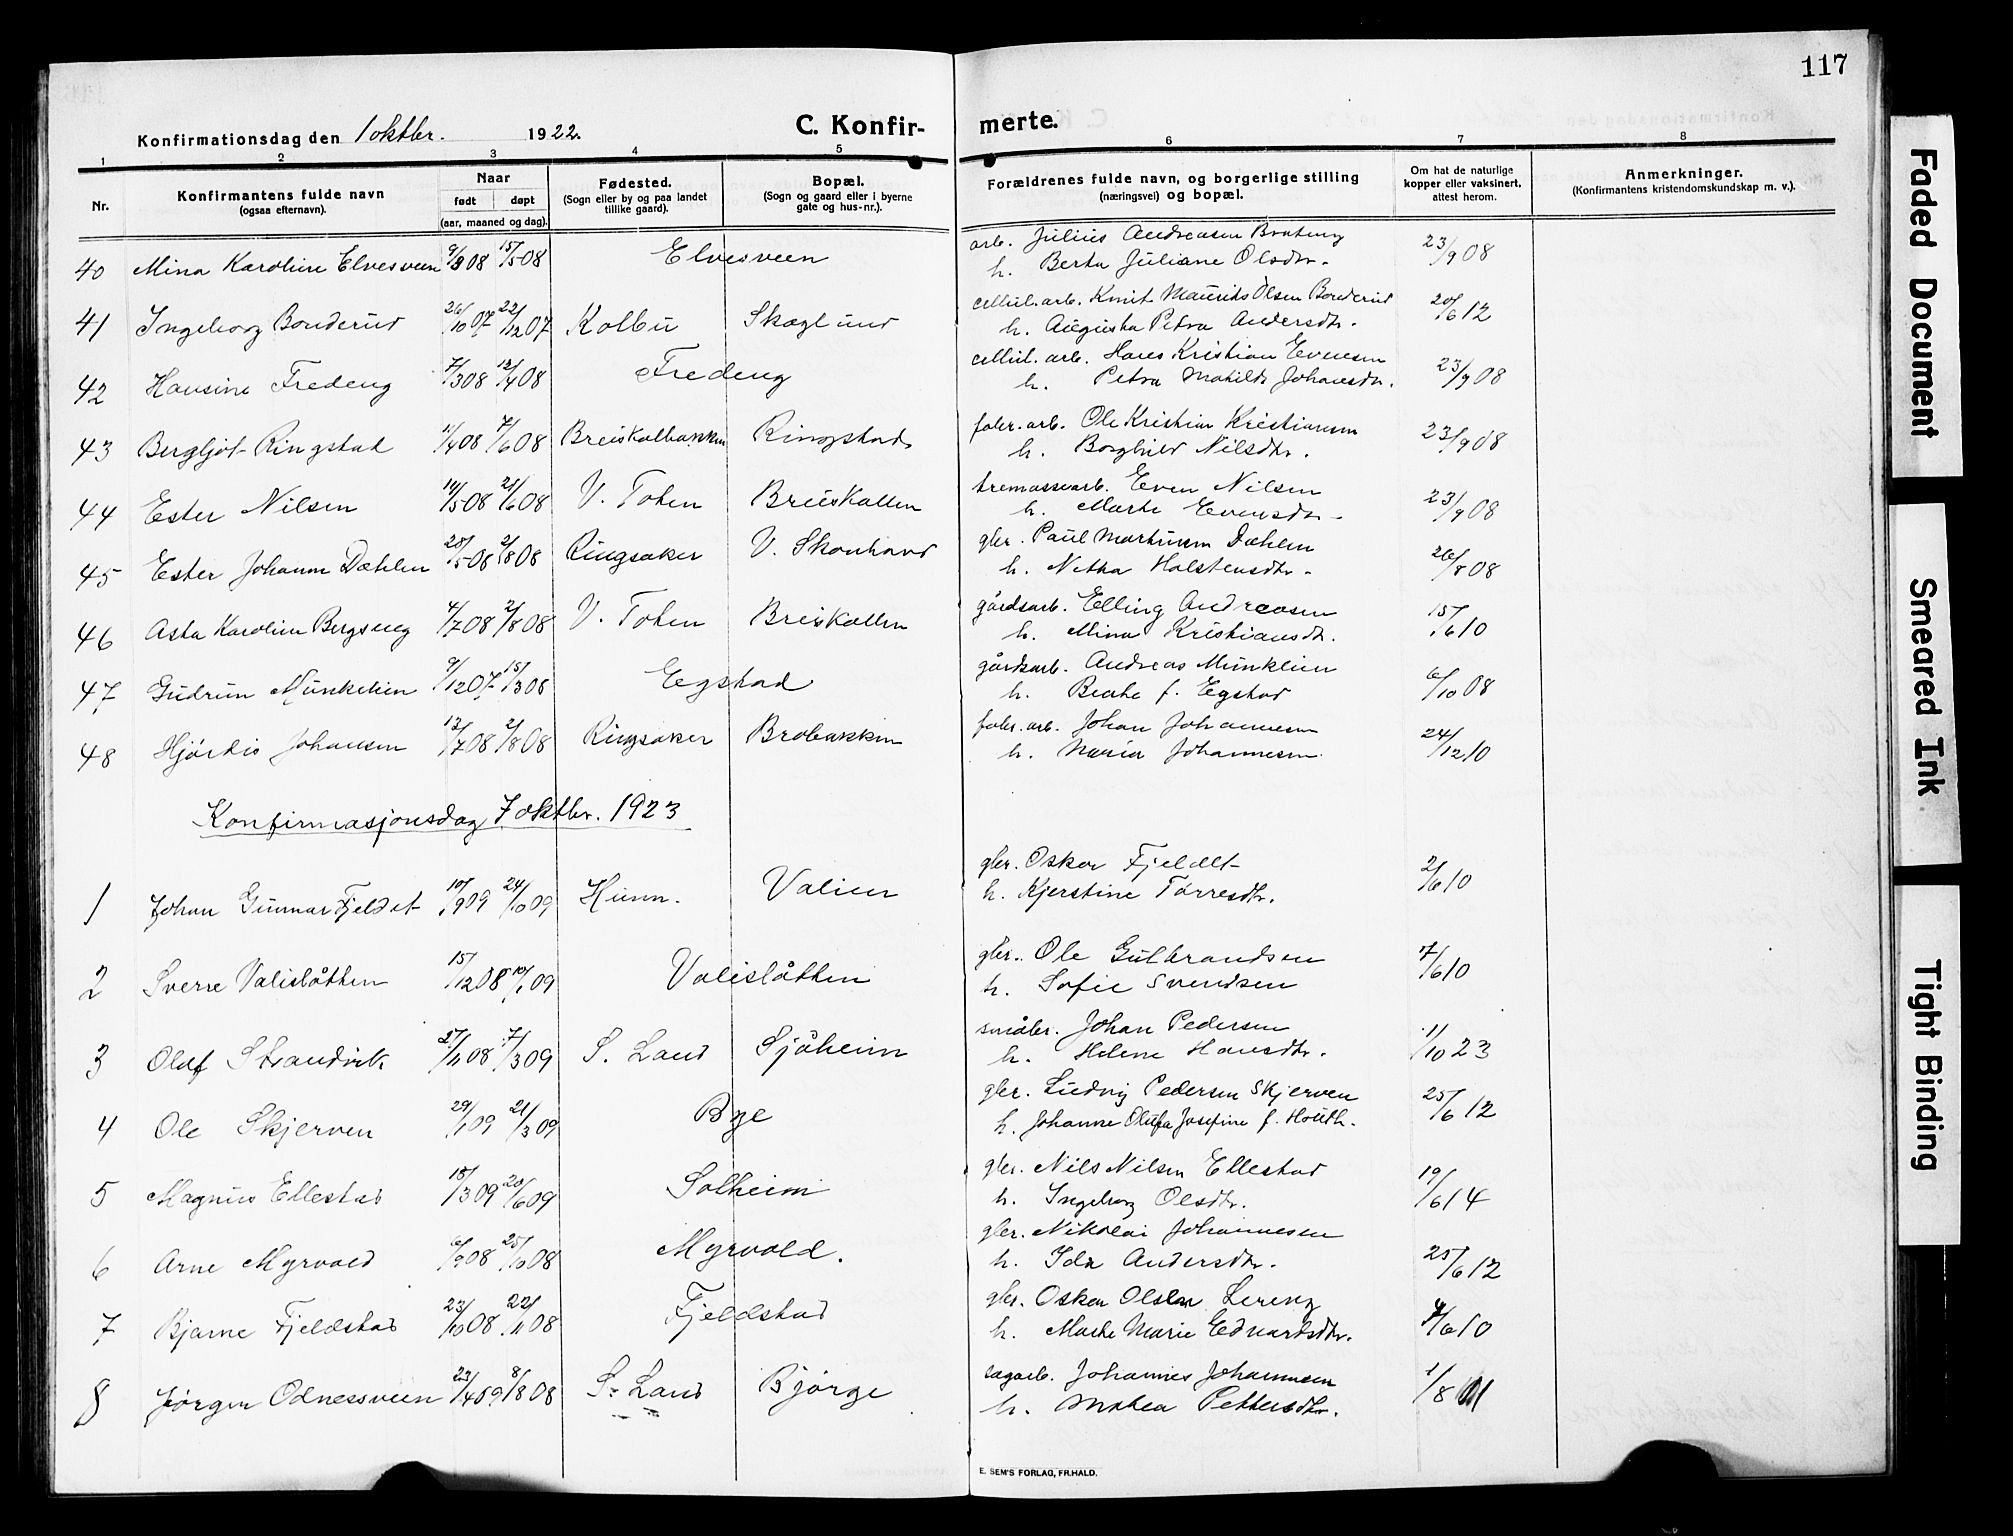 117
Konfirmationsdag den 1 oktbr. 1922.
C. Konfirmerte.
1 2 3 4 5 6 7 8
Nr.
Konfirmantens fulde navn
(ogsaa efternavn).
Naar
født døpt
(aar, maaned og dag).
Fødested.
(Sogn eller by og paa landet
tillike gaard).
Bopæl.
(Sogn og gaard eller i byerne
gate og hus-nr.).
Forældrenes fulde navn, og borgerlige stilling
(næringsvei) og bopæl.
Om hat de naturlige
kopper eller vaksinert,
attest herom.
Anmerkninger.
(Konfirmantens kristendomskundskap m. v.).
40 Mina Karoline Elvesveen 9/3 08 15/5 08 Elvesveen arb. Julius Andreasen Brateng 23/9 08
h. Berta Juliane Olsdtr.
41 Ingeborg Bonderud 26/10 07 22/12 07 Kolbu Skoglund cellul. arb. Knut Mauritz Olsen Bonderud 20/6 12
h. Augusta Petra Andersdtr.
42 Hansine Fredeng 7/3 08 12/4 08 Fredeng cellul. arb. Hans Kristian Evensen 23/9 08
h. Petra Mathilde Johansdtr.
43 Bergljot Ringstad 11/4 08 7/6 08 Breiskalbakken Ringstad fabr. arb. Ole Kristian Kristiansen 23/9 08
h. Borghild Nilsdtr.
44 Ester Nilsen 14/5 08 21/6 08 V. Toten Breiskallen tremassearb. Even Nilsen 23/9 08
h. Marte Evensdtr.
45 Ester Johanne Dæhlen 28/5 08 2/8 08 Ringsaker V. Skonhovd gbr. Paul Martinsen Dæhlen 26/8 08
h. Netha Holstensdtr.
46 Asta Karoline Bergseng 4/7 08 2/8 08 V. Toten Breiskallen gårdsarb. Elling Andreasen 15/6 10
h. Mina Kristiansdtr.
47 Gudrun Munkelien 9/12 07 15/3 08 Egstad gårdsarb. Andreas Munklien 6/10 08
h. Beate f. Egstad
48 Hjørdis Johansen 12/7 08 2/8 08 Ringsaker Brobakken fabr. arb. Johan Johannesen 24/12 10
h. Maria Johannesen
Konfirmasjonsdag 7 oktbr. 1923
1 Johan Gunnar Fjeldet 10/9 09 24/10 09 Hunn. Valien gbr. Oskar Fjeldet 2/6 10
h. Kjerstine Torresdtr.
2 Sverre Valislåtten 15/12 08 10/1 09 Valislåtten gbr. Ole Gulbrandsen 7/6 10
h. Sofie Svendsen
3 Olaf Strandvik 27/11 08 7/3 09 S. Land Sjøheim småbr. Johan Pedersen 1/10 23
h. Helene Hansdtr.
4 Ole Skjerven 29/1 09 21/3 09 Bye gbr. Ludvig Pedersen Skjerven 25/6 12
h. Johanne Olufa Josefine f. Houth.
5 Magnus Ellestad 15/3 09 20/6 09 Solheim gbr. Nils Nilsen Ellestad 19/6 14
h. Ingeborg Olsdtr.
6 Arne Myrvold 6/9 08 25/10 08 Myrvold. gbr. Nikolai Johannesen 25/6 12
h. Ida Andersdtr.
7 Bjarne Fjeldstad 23/10 08 22/11 08 Fjeldstad gbr. Oskar Olsen Lereng 4/6 10
h. Marte Marie Edvardsdtr.
8 Jørgen Odnessveen 23/4 09 8/8 08 S. Land Bjørge sagarb. Johannes Johannesen 1/8
h. Mathea Pettersdtr.
E. SEM'S FORLAG, FR.HALD.
Faded Document
Smeared Ink
Tight Binding